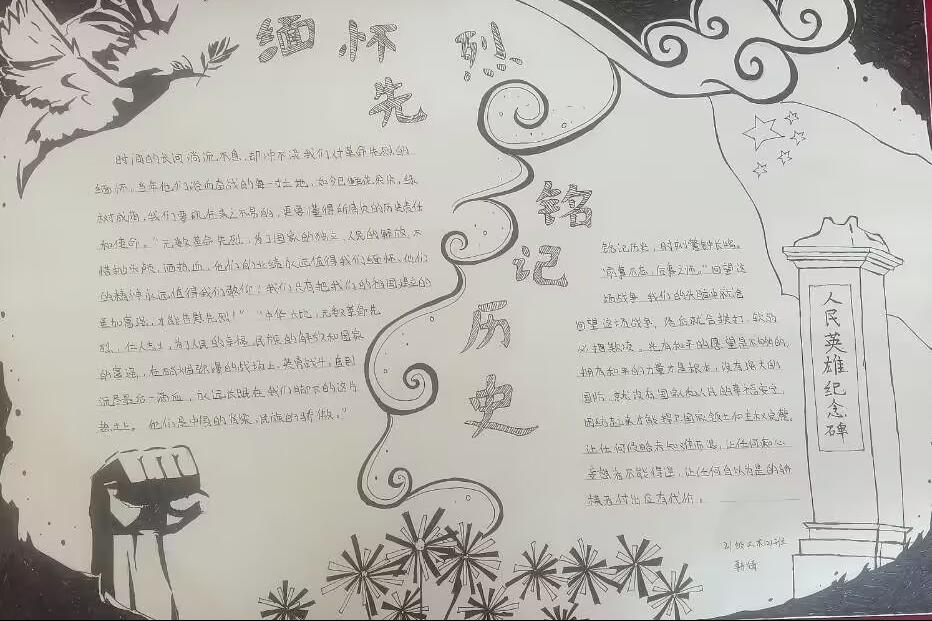 缅怀先烈
铭记历史
时间的长河滔滔不息,却冲不淡我们对革命先烈的
缅怀,当年他们浴血奋战的每一寸土地,如今已
树成荫,我们要珍惜来之不易的,更要懂得所肩负的历史责任
和使命。“无数革命先烈,为了国家的独立、人民的解放,不
惜抛头颅、洒热血,他们的业绩永远值得我们缅怀,他们
的精神永远值得我们歌价!我们只有把我们的祖国建设的
更加富强,才能告慰先烈!”“中华大地,无数革命先
烈,仁人志士,为了人民的幸福,民族的解放和国家
的富强,在硝烟弥漫的战场上,英勇战斗,直到
流尽最后一滴血,永远长眠在我们脚下的这片
热土上。他们是中国的脊梁,民族的骄傲。”
铭记历史,时刻警钟长鸣。
“前事不忘,后事之师。”回望这
场战争,我们的
回望这场战争,落后就会挨打,软弱
必遭欺凌。光有和平的愿望是不够的,
拥有和平的力量才是根本,没有强大的
国防,就没有国家和人民的幸福安定,
团结起来才能捍卫国家领土和主权完整,
让任何侵略者知难而退,让任何野心
妄想者不能得逞,让任何自以为是的
横者付出应有代价。
人民英雄纪念碑
21级